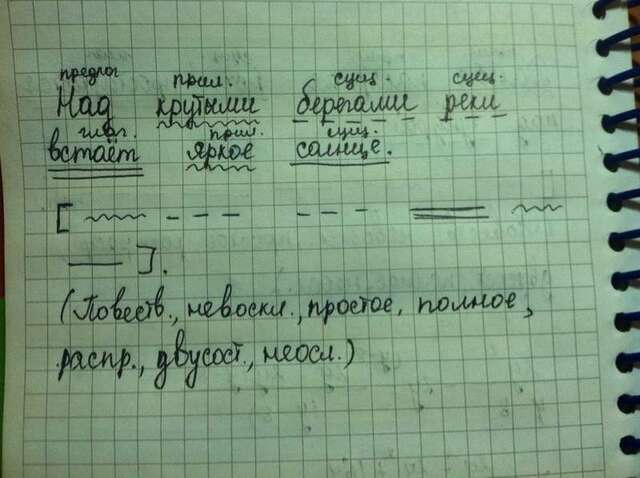 предлог прил. сущ. сущ.
Над крутыми берегами реки
глаг. прил. сущ.
встаёт яркое солнце.
[ ].
(Повеств., невоскл., простое, полное,
распр., двусост., неосл.)